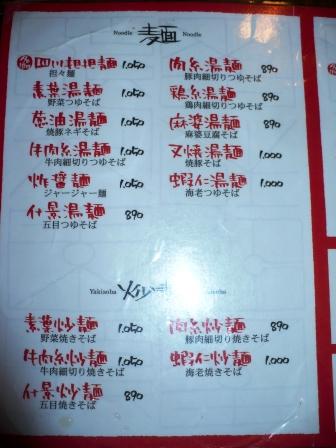 Noodle 麺 Noodle
四川担担麺 1.050
担々麺
素菜湯麺 1.050
野菜つゆそば
葱油湯麺 1.050
焼豚ネギそば
牛肉糸湯麺 1.050
牛肉細切りつゆそば
炸醤麺 1.050
ジャージャー麺
什景湯麺 890
五目つゆそば
肉糸湯麺 890
豚肉細切りつゆそば
鶏糸湯麺 890
鶏肉細切つゆそば
麻婆湯麺 890
麻婆豆腐そば
叉焼湯麺 1.000
焼豚そば
蝦仁湯麺 1.000
海老つゆそば
Yakisoba
素菜炒麺 1.050
野菜焼きそば
牛肉糸炒麺 1.050
牛肉細切り焼きそば
什景炒麺 890
五目焼きそば
肉糸炒麺 890
豚肉細切り焼きそば
蝦仁炒麺 1.000
海老焼きそば